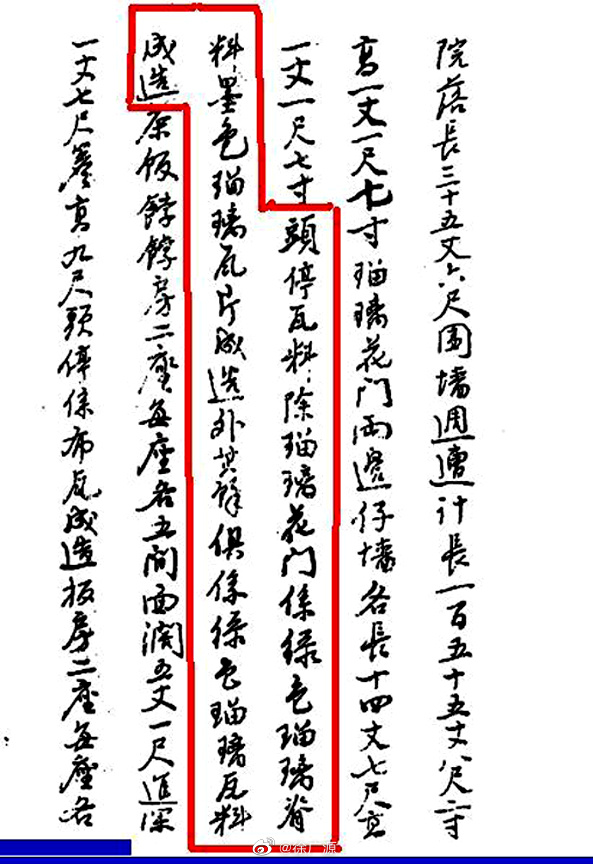 院落長三十五丈六尺围墻週遭計長一百五十五丈八尺二寸
高一丈一尺七寸瑠璃花门両邊仔墻各長十四丈七尺高
一丈一尺七寸頭停瓦料除瑠璃花门係緑色瑠璃脊
料墨色瑠璃瓦片成造外其餘俱係緑色瑠璃瓦料
成造茶饭餑餑房二座每座各五间面濶五丈一尺進深
一丈七尺簷高九尺頭停係布瓦成造板房二座每座各
@徐广源